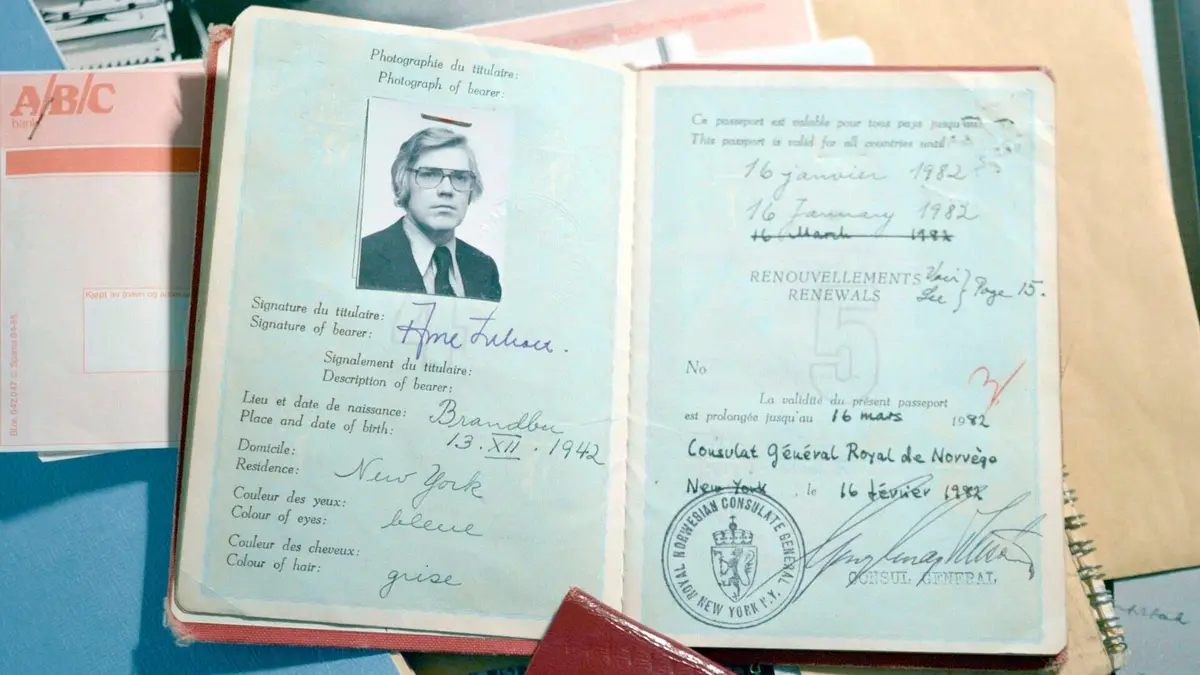 A/B/C
bank
Bloc 042047
Photographie du titulaire:
Photograph of bearer:
Signature du titulaire:
Signature of bearer:
Signalement du titulaire:
Description of bearer:
Lieu et date de naissance:
Place and date of birth:
Brandbu
13. XII. 1942
Domicile:
Residence:
New York
Couleur des yeux:
Colour of eyes:
bleue
Couleur des cheveux:
Colour of hair:
grise
Ce passeport est valable pour tous pays jusqu'au
This passport is valid for all countries until
16 janvier 1982
16 January 1982
16 March 1982
RENOUVELLEMENTS Voir
RENEWALS See } Page 15.
5
No
La validité du présent passeport
est prolongée jusqu'au 16 mars 1982
Consulat Général Royal de Norvège
New York, le 16 février 1982
CONSUL GENERAL
ROYAL NORWEGIAN CONSULATE GENERAL
NEW YORK N.Y.